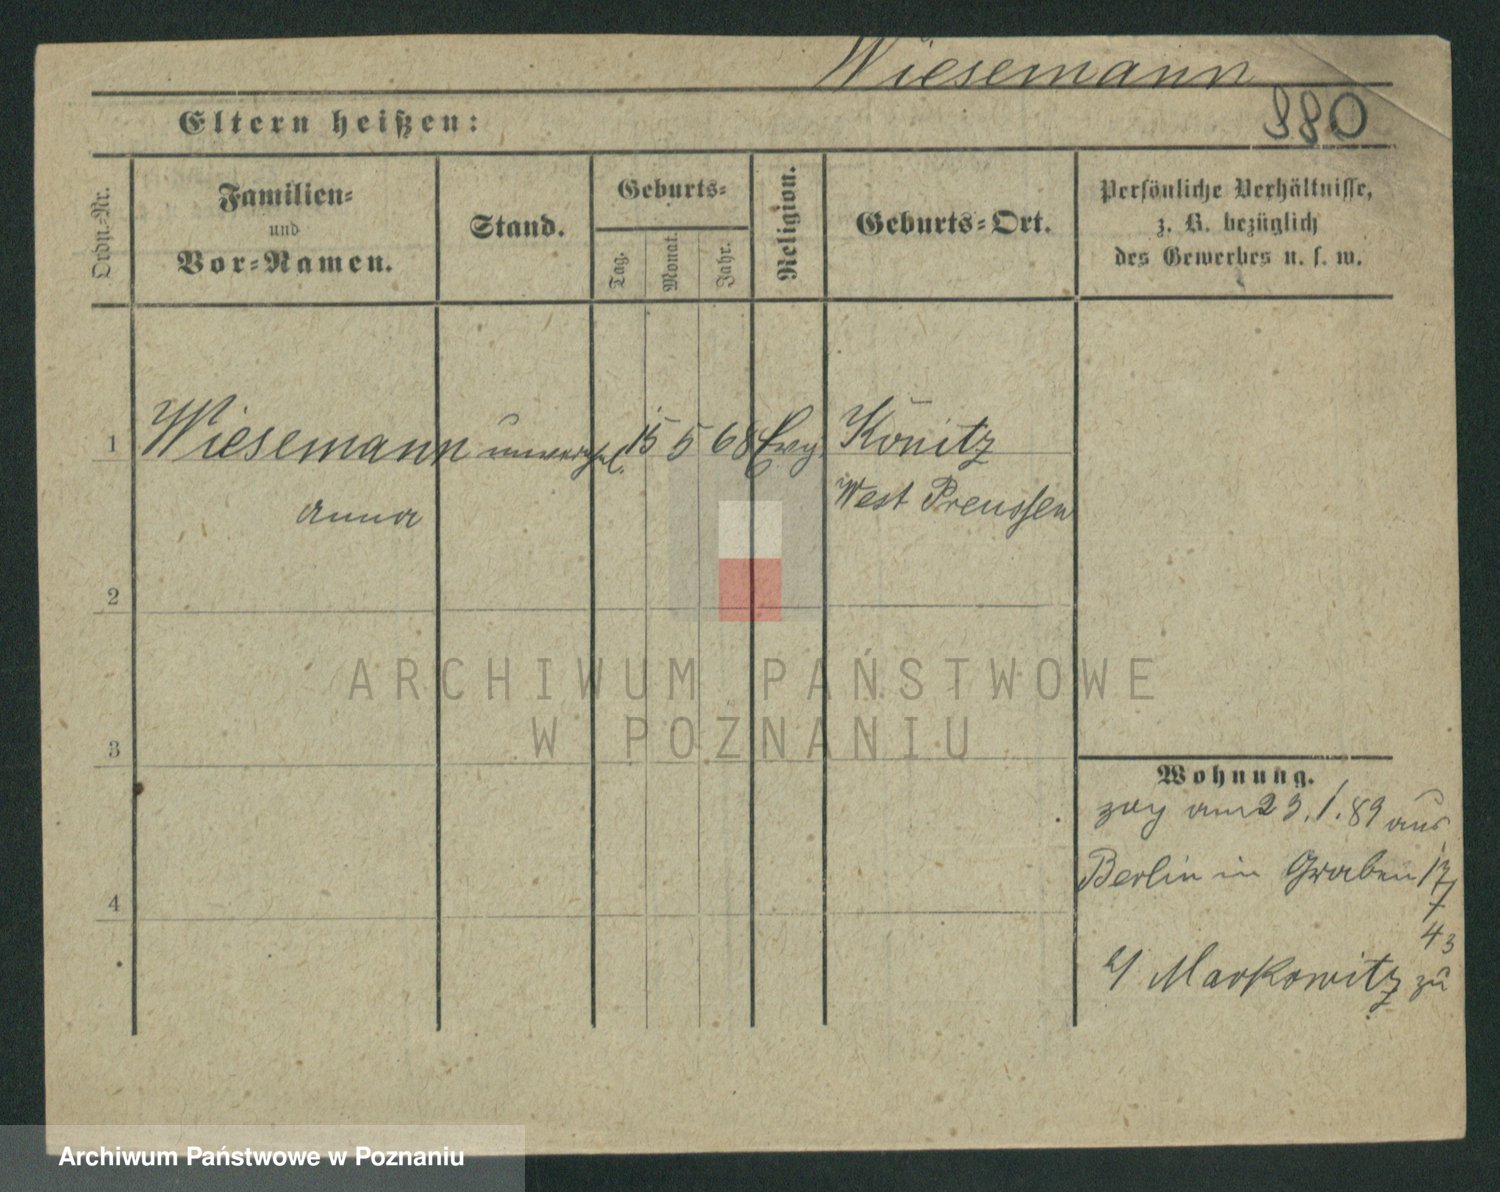 Wiesemann
880
Eltern heißen:
Ordn.-Nr.
Familien-
und
Vor-Namen.
Stand.
Geburts-
Tag.
Monat.
Jahr.
Religion.
Geburts-Ort.
Persönliche Verhältnisse,
z. B. bezüglich
des Gewerbes u. s. w.
1 Wiesemann unverehel. 15 5 68 Evg. Konitz
Anna West Preussen
2
3
4
Wohnung.
zog am 23.1.89 aus
Berlin in Graben
b/ Markowitz zu
ARCHIWUM PAŃSTWOWE
W POZNANIU
Archiwum Państwowe w Poznaniu